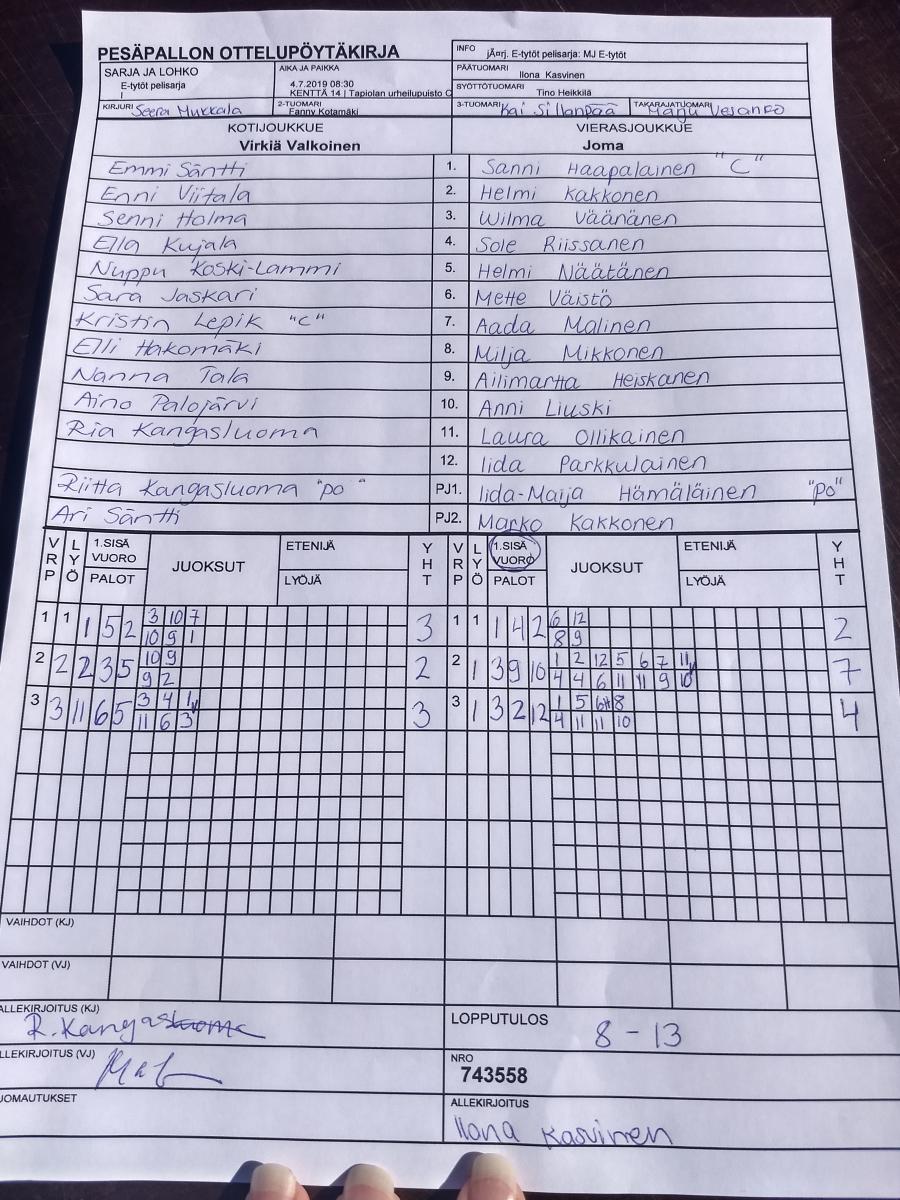 PESÄPALLON OTTELUPÖYTÄKIRJA
INFO jÃ¤rj. E-tytöt pelisarja: MJ E-tytöt
SARJA JA LOHKO
E-tytöt pelisarja
I
AIKA JA PAIKKA
4.7.2019 08:30
KENTTÄ 14 | Tapiolan urheilupuisto C
PÄÄTUOMARI
Ilona Kasvinen
SYÖTTÖTUOMARI
Tino Heikkilä
KIRJURI Seera Mukkala
2-TUOMARI
Fanny Kotamäki
3-TUOMARI Kai Sillanpää
TAKARAJATUOMARI Marju Vesanko
KOTIJOUKKUE
Virkiä Valkoinen
VIERASJOUKKUE
Joma
Emmi Säntti 1. Sanni Haapalainen "C"
Enni Viitala 2. Helmi Kakkonen
Senni Holma 3. Wilma Väänänen
Ella Kujala 4. Sole Riissanen
Nuppu Koski-Lammi 5. Helmi Näätänen
Sara Jaskari 6. Mette Väistö
Kristin Lepik "C" 7. Aada Malinen
Elli Hakomäki 8. Milja Mikkonen
Nanna Tala 9. Ailimartta Heiskanen
Aino Palojärvi 10. Anni Liuski
Ria Kangasluoma 11. Laura Ollikainen
12. Iida Parkkulainen
Riitta Kangasluoma "po" PJ1. Iida-Maija Hämäläinen "po"
Ari Säntti PJ2. Marko Kakkonen
VRP LYÖ 1.SISÄ VUORO PALOT JUOKSUT ETENIJÄ LYÖJÄ YHT VRP LYÖ 1.SISÄ VUORO PALOT JUOKSUT ETENIJÄ LYÖJÄ YHT
1 1 1 5 2 3 10 7 3 1 1 1 4 2 6 12 2
10 9 1 8 9
2 2 2 3 5 10 9 2 2 1 3 9 10 1 2 12 5 6 7 11 7
9 2 4 4 6 11 11 9 10
3 3 11 6 5 3 4 1 3 3 1 3 2 12 1 5 6H 8 4
11 6 3 4 11 11 10
VAIHDOT (KJ)
VAIHDOT (VJ)
ALLEKIRJOITUS (KJ)
R. Kangasluoma
LOPPUTULOS
8 - 13
LLEKIRJOITUS (VJ)
NRO
743558
JOMAUTUKSET
ALLEKIRJOITUS
Ilona Kasvinen